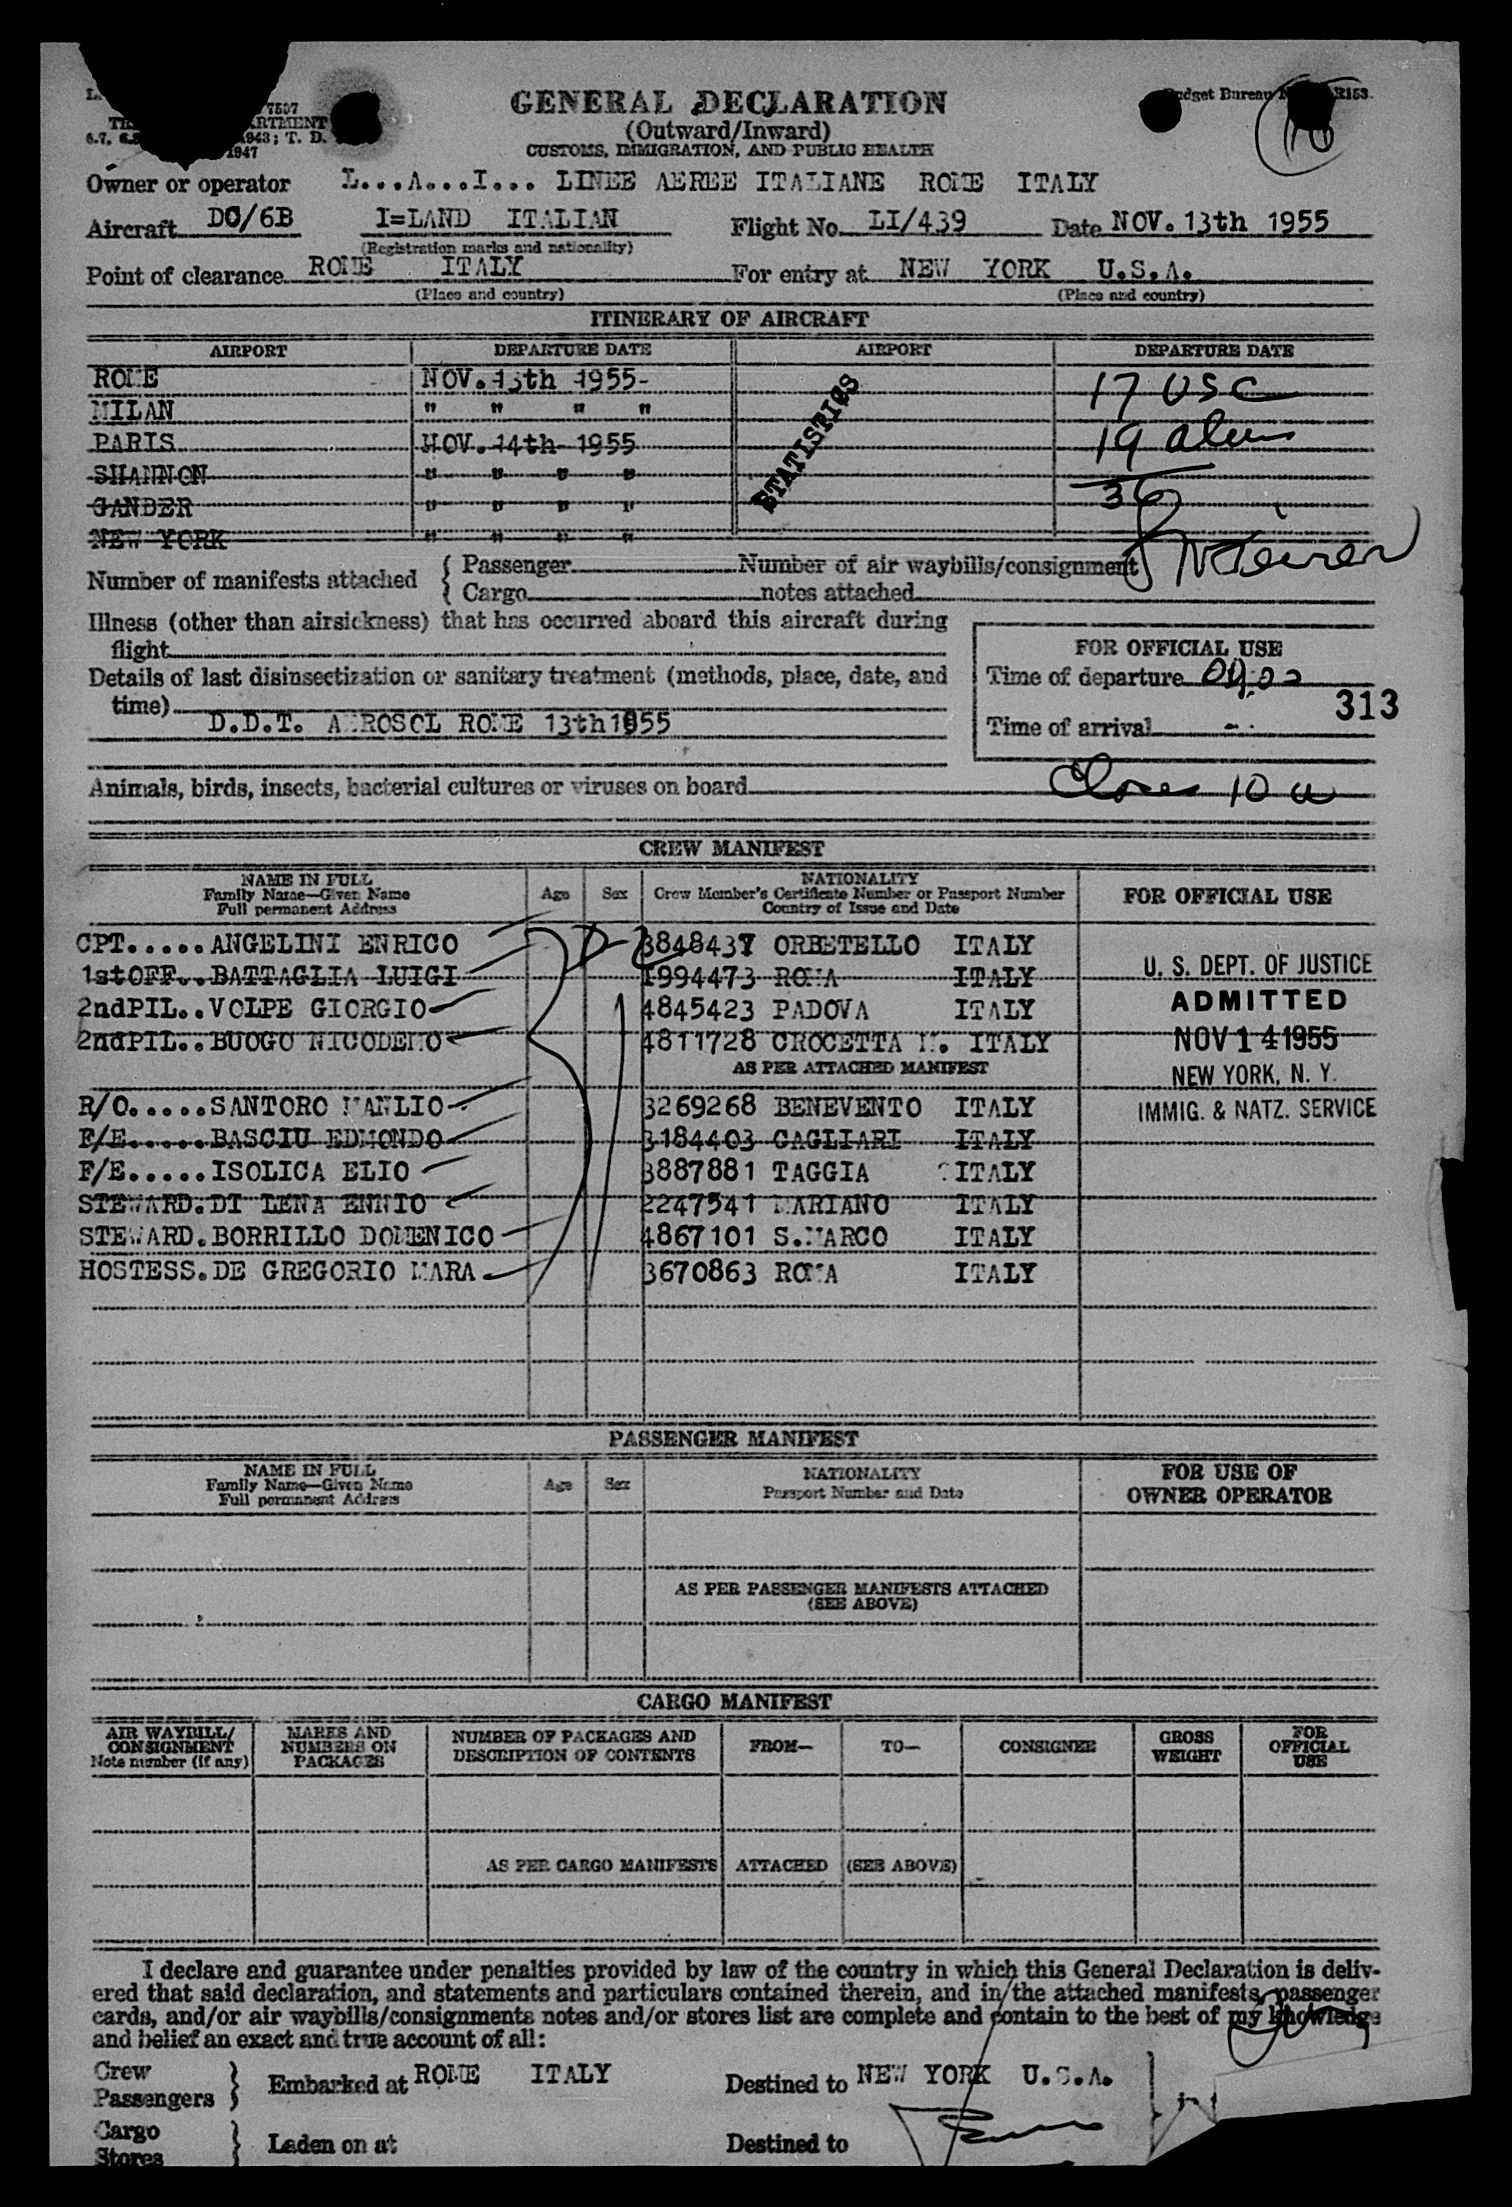 7507
ARTMENT
1943; T. D.
1947
Budget Bureau
R153.
GENERAL DECLARATION
(Outward/Inward)
CUSTOMS, IMMIGRATION, AND PUBLIC HEALTH
Owner or operator L...A...I... LINEE AEREE ITALIANE ROME ITALY
Aircraft DC/6B I=LAND ITALIAN Flight No. LI/439 Date NOV. 13th 1955
(Registration marks and nationality)
Point of clearance ROME ITALY For entry at NEW YORK U.S.A.
(Place and country) (Place and country)
ITINERARY OF AIRCRAFT
AIRPORT DEPARTURE DATE AIRPORT DEPARTURE DATE
ROME NOV. 13th 1955- 17 USC
MILAN " " " "
PARIS NOV. 14th 1955 19 aliens
SHANNON " " " "
GANDER " " " " 36
NEW YORK " " " "
STATISTICS
Number of manifests attached { Passenger Number of air waybills/consignment
Cargo notes attached
Illness (other than airsickness) that has occurred aboard this aircraft during
flight
FOR OFFICIAL USE
Details of last disinsectization or sanitary treatment (methods, place, date, and
time)
Time of departure
313
D.D.T. AEROSOL ROME 13th1955
Time of arrival
Animals, birds, insects, bacterial cultures or viruses on board
CREW MANIFEST
NAME IN FULL
Family Name—Given Name
Full permanent Address
Age Sex
NATIONALITY
Crew Member's Certificate Number or Passport Number
Country of Issue and Date
FOR OFFICIAL USE
CPT.....ANGELINI ENRICO 3848437 ORBETELLO ITALY
1stOFF..BATTAGLIA LUIGI 1994473 ROMA ITALY
2ndPIL..VOLPE GIORGIO 4845423 PADOVA ITALY
2ndPIL..BUOGO NICODEMO 4811728 CROCETTA M. ITALY
AS PER ATTACHED MANIFEST
R/O.....SANTORO MANLIO 3269268 BENEVENTO ITALY
F/E.....BASCIU EDMONDO 3184403 CAGLIARI ITALY
F/E.....ISOLICA ELIO 3887881 TAGGIA ITALY
STEWARD.DI LENA ENNIO 2247541 MARIANO ITALY
STEWARD.BORRILLO DOMENICO 4867101 S.MARCO ITALY
HOSTESS.DE GREGORIO MARA 3670863 ROMA ITALY
U. S. DEPT. OF JUSTICE
ADMITTED
NOV 14 1955
NEW YORK, N. Y.
IMMIG. & NATZ. SERVICE
PASSENGER MANIFEST
NAME IN FULL
Family Name—Given Name
Full permanent Address
Age Sex
NATIONALITY
Passport Number and Date
FOR USE OF
OWNER OPERATOR
AS PER PASSENGER MANIFESTS ATTACHED
(SEE ABOVE)
CARGO MANIFEST
AIR WAYBILL/
CONSIGNMENT
Note number (if any)
MARKS AND
NUMBERS ON
PACKAGES
NUMBER OF PACKAGES AND
DESCRIPTION OF CONTENTS
FROM— TO— CONSIGNEE
GROSS
WEIGHT
FOR
OFFICIAL
USE
AS PER CARGO MANIFESTS ATTACHED (SEE ABOVE)
I declare and guarantee under penalties provided by law of the country in which this General Declaration is deliv-
ered that said declaration, and statements and particulars contained therein, and in the attached manifests, passenger
cards, and/or air waybills/consignments notes and/or stores list are complete and contain to the best of my knowledge
and belief an exact and true account of all:
Crew
Passengers } Embarked at ROME ITALY Destined to NEW YORK U.S.A.
Cargo
Stores } Laden on at Destined to